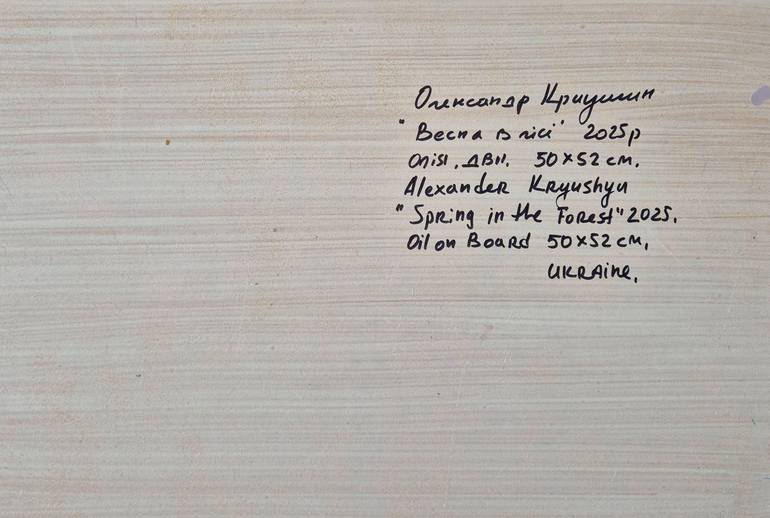 Олександр Криушин
"Весна в лісі" 2025р
Олія, ДВП. 50×52 см.
Alexander Kryushyn
"Spring in the Forest" 2025.
Oil on Board 50×52 cm.
UKRAine.